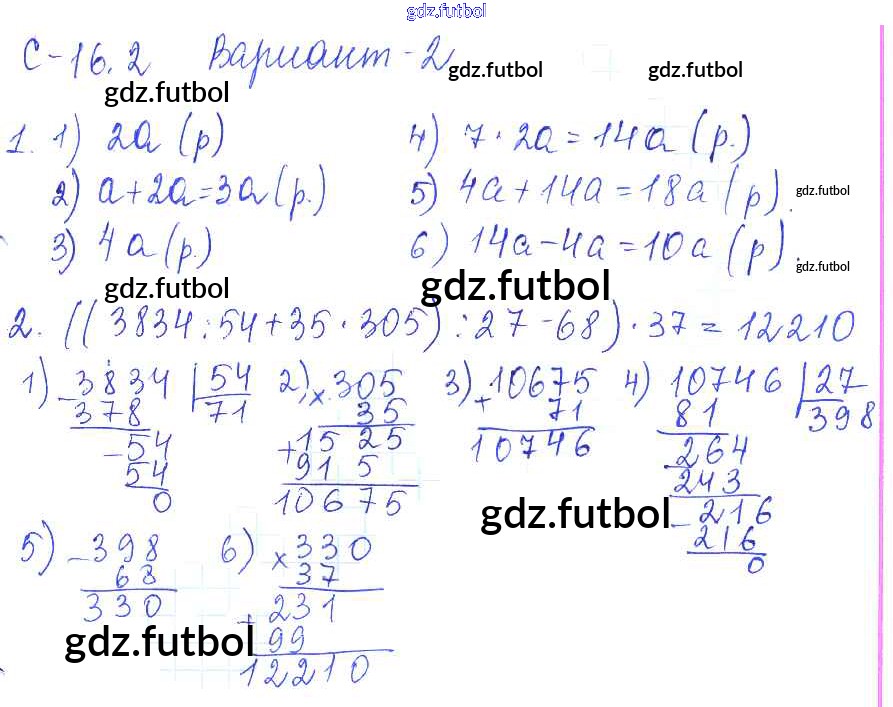 gdz.futbol
С-16.2 Вариант-2
gdz.futbol gdz.futbol
gdz.futbol
1. 1) 2a (р) 4) 7·2a=14a (р.)
2) a+2a=3a (р.) 5) 4a+14a=18a (р).
gdz.futbol
3) 4a (р.) 6) 14a-4a=10a (р).
gdz.futbol
gdz.futbol gdz.futbol
2. ((3834:54+35·305):27-68)·37=12210
1) -3834 |54 2) ×305 3) +10675 4) 10746 |27
378 71 35 71 81 398
-54 +1525 10746 -264
54 915 243
0 10675 -216
gdz.futbol 216
0
5) -398 6) ×330
68 37
330 +231
gdz.futbol 99
12210